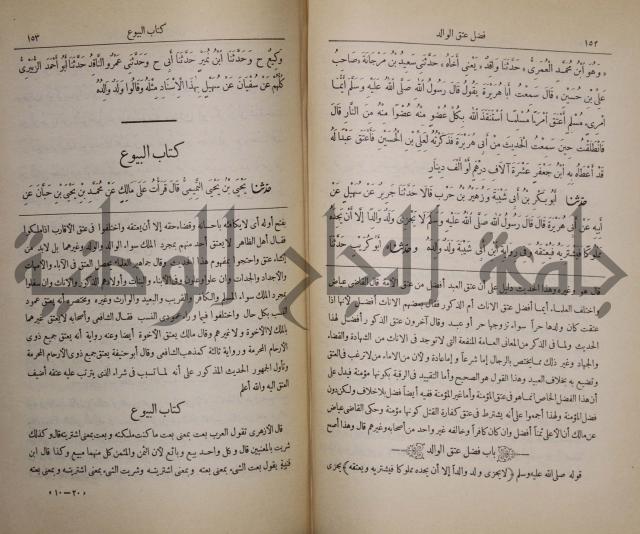 ١٥٢ فضل عتق الوالد
« وهو ابن محمد العمرى » حدثنا واقد « يعنى أخاه » حدثنى سعيد بن مرجانة « صاحب
على بن حسين » قال سمعت أبا هريرة يقول قال رسول الله صلى الله عليه وسلم أيما
امرىء مسلم أعتق امرأ مسلما استنقذ الله بكل عضو منه عضوا منه من النار قال
فانطلقت حين سمعت الحديث من أبى هريرة فذكرته لعلى بن الحسين فأعتق عبدا له
قد أعطاه به ابن جعفر عشرة آلاف درهم أو ألف دينار
حدثنا أبو بكر بن أبى شيبة وزهير بن حرب قالا حدثنا جرير عن سهيل عن
أبيه عن أبى هريرة قال قال رسول الله صلى الله عليه وسلم لا يجزى ولد والدا إلا أن يجده
مملوكا فيشتريه فيعتقه وفى رواية ابن أبى شيبة ولد والده و حدثناه أبو كريب حدثنا
قال هو وغيره وهذا الحديث دليل على أن عتق العبد أفضل من عتق الأمة قال القاضى عياض
واختلف العلماء أيما أفضل عتق الاناث أم الذكور فقال بعضهم الاناث أفضل لأنها اذا
عتقت كان ولدها حراً سواء تزوجها حر أو عبد وقال آخرون عتق الذكور أفضل لهذا
الحديث ولما فى الذكر من المعانى العامة المنفعة التى لا توجد فى الاناث من الشهادة والقضاء
والجهاد وغير ذلك مما يختص بالرجال إما شرعاً وإما عادة ولان من الاماء من لا ترغب فى العتق
وتضيع به بخلاف العبيد وهذا القول هو الصحيح وأما التقييد فى الرقبة بكونها مؤمنة فيدل على
أن هذا الفضل الخاص انما هو فى عتق المؤمنة وأما غير المؤمنة ففيه أيضاً فضل بلا خلاف ولكن دون
فضل المؤمنة ولهذا أجمعوا على أنه يشترط فى عتق كفارة القتل كونها مؤمنة وحكى القاضى عياض
عن مالك أن الاعلى ثمناً أفضل وان كان كافراً وخالفه غير واحد من أصحابه وغيرهم قال وهذا أصح
باب فضل عتق الوالد
قوله صلى الله عليه وسلم ﴿ لا يجزى ولد والداً إلا أن يجده مملوكا فيشتريه ويعتقه ﴾ يجزى
كتاب البيوع ١٥٣
وكيع ح وحدثنا ابن نمير حدثنا أبى ح وحدثنى عمرو الناقد حدثنا أبو أحمد الزبيرى
كلهم عن سفيان عن سهيل بهذا الاسناد مثله وقالوا ولد والده
كتاب البيوع
حدثنا يحيى بن يحيى التميمى قال قرأت على مالك عن محمد بن يحيى بن حبان عن
بفتح أوله أى لا يكافئه باحسانه وقضاء حقه إلا أن يعتقه واختلفوا فى عتق الأقارب اذا ملكوا
فقال أهل الظاهر لا يعتق أحد منهم بمجرد الملك سواء الوالد والولد وغيرهما بل لا بد من
إنشاء عتق واحتجوا بمفهوم هذا الحديث وقال جماهير العلماء يحصل العتق فى الآباء والأمهات
والأجداد والجدات وان علوا وعلون وفى الأبناء والبنات وأولادهم الذكور والاناث وان سفلوا
بمجرد الملك سواء المسلم والكافر والقريب والبعيد والوارث وغيره ومختصره أنه يعتق عمود
النسب بكل حال واختلفوا فيما وراء عمودى النسب فقال الشافعى وأصحابه لا يعتق غيرهما
بالملك لا الاخوة ولا غيرهم وقال مالك يعتق الأخوة أيضاً وعنه رواية أنه يعتق جميع ذوى
الأرحام المحرمة ورواية ثالثة كمذهب الشافعى وقال أبو حنيفة يعتق جميع ذوى الأرحام المحرمة
وتأول الجمهور الحديث المذكور على أنه لما تسبب فى شراء الذى يترتب عليه عتقه أضيف
العتق اليه والله أعلم
كتاب البيوع
قال الأزهرى تقول العرب بعت بمعنى بعت ما كنت ملكته وبعت بمعنى اشتريته قال وكذلك
شريت بالمعنيين قال وكل واحد بيع وبائع لأن الثمن والمثمن كل منهما مبيع وكذا قال ابن
قتيبة يقول بعت الشىء بمعنى بعته وبمعنى اشتريته وشريت الشىء بمعنى اشتريته وبمعنى بعته
« ٢٠ – ١٠ »
جامعة النجاح الوطنية